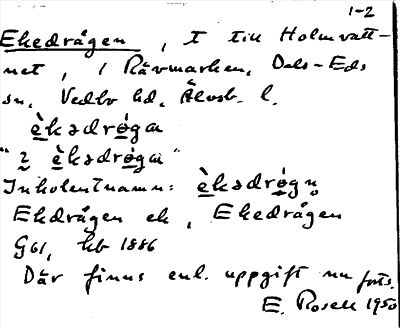 1-2
Ekedrågen, t till Holmvatt-
net, i Rävmarken, Dals-Eds
sn, Vedbo hd, Älvsb. l.
è̱kədrø̱ga
"2 è̱kədrø̱ga"
Inkolentnamn: è̱kədrø̱gn̥
Ekdrågen ek, Ekedrågen
G61, hb 1886
Där finns enl. uppgift nu forts.
E. Rosell 1950